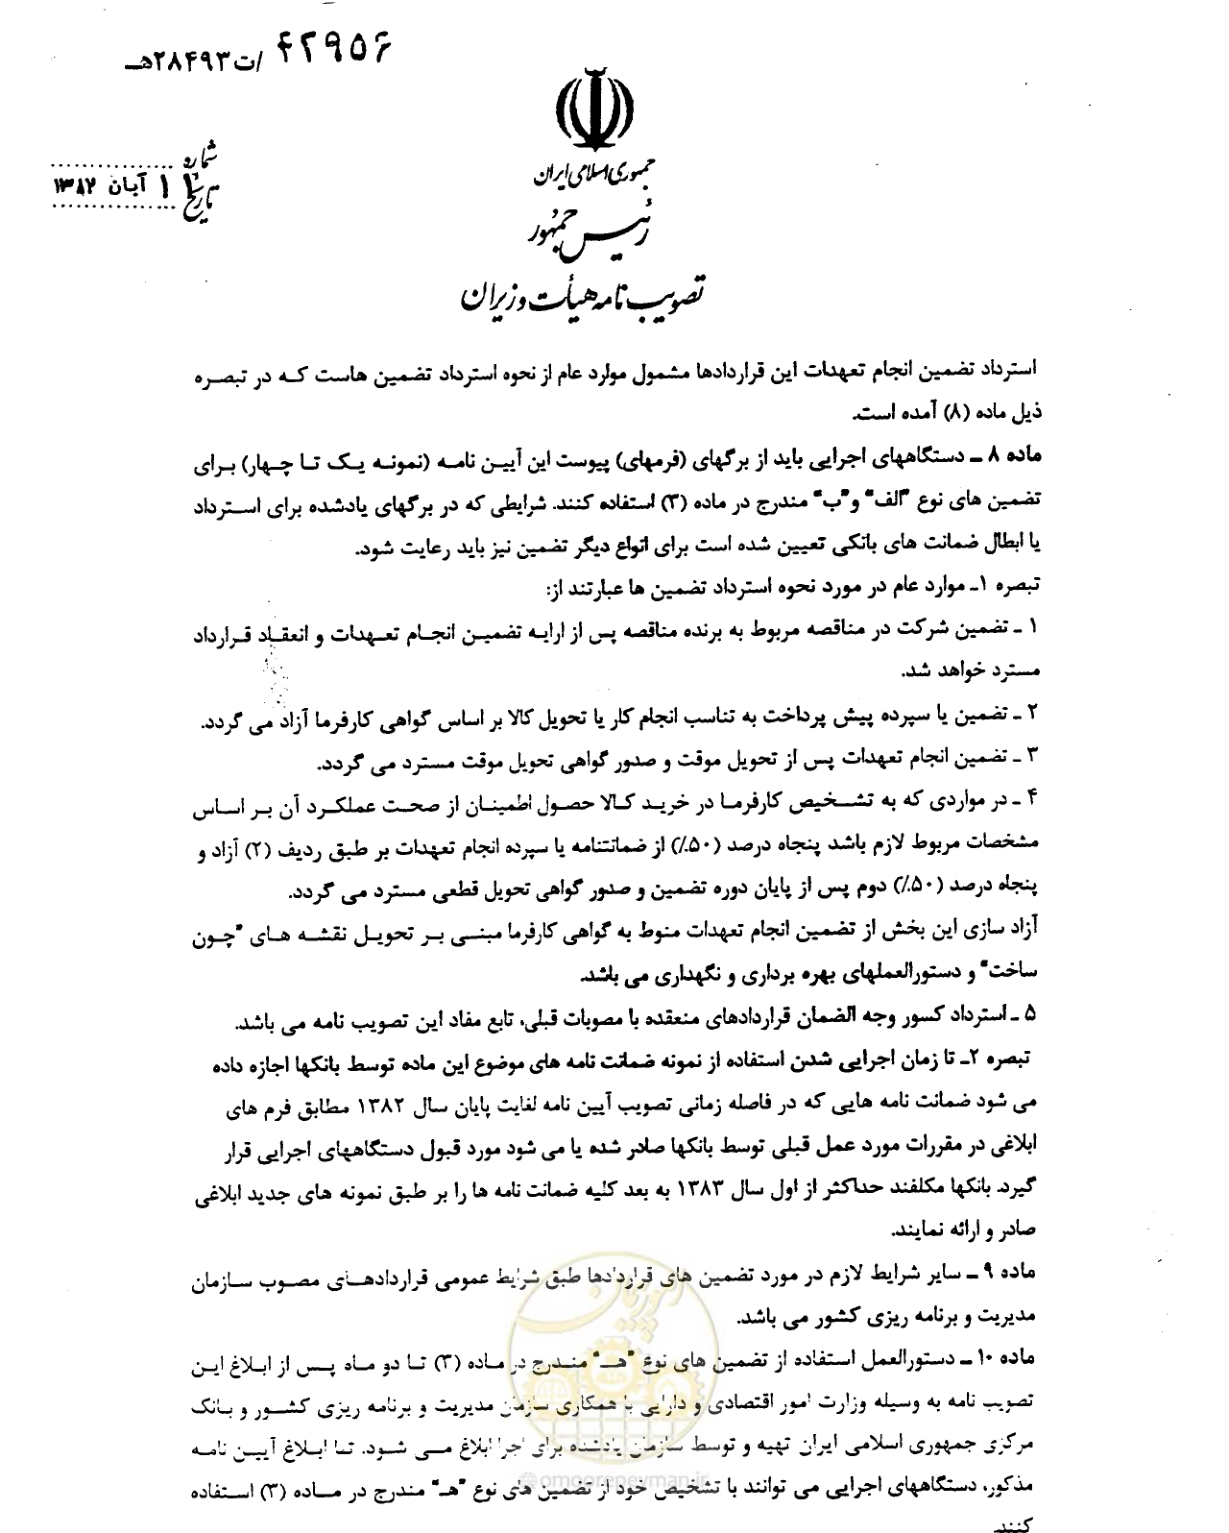 ۴۲۹۵۶ /ت۲۸۴۹۳هـ
جمهوری اسلامی ایران
شماره
تاریخ ۱۱ آبان ۱۳۸۲
رئیس جمهور
تصویب نامه هیأت وزیران
استرداد تضمین انجام تعهدات این قراردادها مشمول موارد عام از نحوه استرداد تضمین هاست که در تبصره
ذیل ماده (۸) آمده است.
ماده ۸ ـ دستگاههای اجرایی باید از برگهای (فرمهای) پیوست این آیین نامه (نمونه یک تا چهار) برای
تضمین های نوع "الف" و"ب" مندرج در ماده (۳) استفاده کنند. شرایطی که در برگهای یادشده برای استرداد
یا ابطال ضمانت های بانکی تعیین شده است برای انواع دیگر تضمین نیز باید رعایت شود.
تبصره ۱ـ موارد عام در مورد نحوه استرداد تضمین ها عبارتند از:
۱ ـ تضمین شرکت در مناقصه مربوط به برنده مناقصه پس از ارایه تضمین انجام تعهدات و انعقاد قرارداد
مسترد خواهد شد.
۲ ـ تضمین یا سپرده پیش پرداخت به تناسب انجام کار یا تحویل کالا بر اساس گواهی کارفرما آزاد می گردد.
۳ ـ تضمین انجام تعهدات پس از تحویل موقت و صدور گواهی تحویل موقت مسترد می گردد.
۴ ـ در مواردی که به تشخیص کارفرما در خرید کالا حصول اطمینان از صحت عملکرد آن بر اساس
مشخصات مربوط لازم باشد پنجاه درصد (۵۰٪) از ضمانتنامه یا سپرده انجام تعهدات بر طبق ردیف (۲) آزاد و
پنجاه درصد (۵۰٪) دوم پس از پایان دوره تضمین و صدور گواهی تحویل قطعی مسترد می گردد.
آزاد سازی این بخش از تضمین انجام تعهدات منوط به گواهی کارفرما مبنی بر تحویل نقشه های "چون
ساخت" و دستورالعملهای بهره برداری و نگهداری می باشد.
۵ ـ استرداد کسور وجه الضمان قراردادهای منعقده با مصوبات قبلی، تابع مفاد این تصویب نامه می باشد.
تبصره ۲ـ تا زمان اجرایی شدن استفاده از نمونه ضمانت نامه های موضوع این ماده توسط بانکها اجازه داده
می شود ضمانت نامه هایی که در فاصله زمانی تصویب آیین نامه لغایت پایان سال ۱۳۸۲ مطابق فرم های
ابلاغی در مقررات مورد عمل قبلی توسط بانکها صادر شده یا می شود مورد قبول دستگاههای اجرایی قرار
گیرد. بانکها مکلفند حداکثر از اول سال ۱۳۸۳ به بعد کلیه ضمانت نامه ها را بر طبق نمونه های جدید ابلاغی
صادر و ارائه نمایند.
ماده ۹ ـ سایر شرایط لازم در مورد تضمین های قراردادها طبق شرایط عمومی قراردادهای مصوب سازمان
مدیریت و برنامه ریزی کشور می باشد.
ماده ۱۰ ـ دستورالعمل استفاده از تضمین های نوع "هـ" مندرج در ماده (۳) تا دو ماه پس از ابلاغ این
تصویب نامه به وسیله وزارت امور اقتصادی و دارایی با همکاری سازمان مدیریت و برنامه ریزی کشور و بانک
مرکزی جمهوری اسلامی ایران تهیه و توسط سازمان یادشده برای اجرا ابلاغ می شود. تا ابلاغ آیین نامه
مذکور، دستگاههای اجرایی می توانند با تشخیص خود از تضمین های نوع "هـ" مندرج در ماده (۳) استفاده
کنند.
امور پیمان
@omoorepeyman.ir